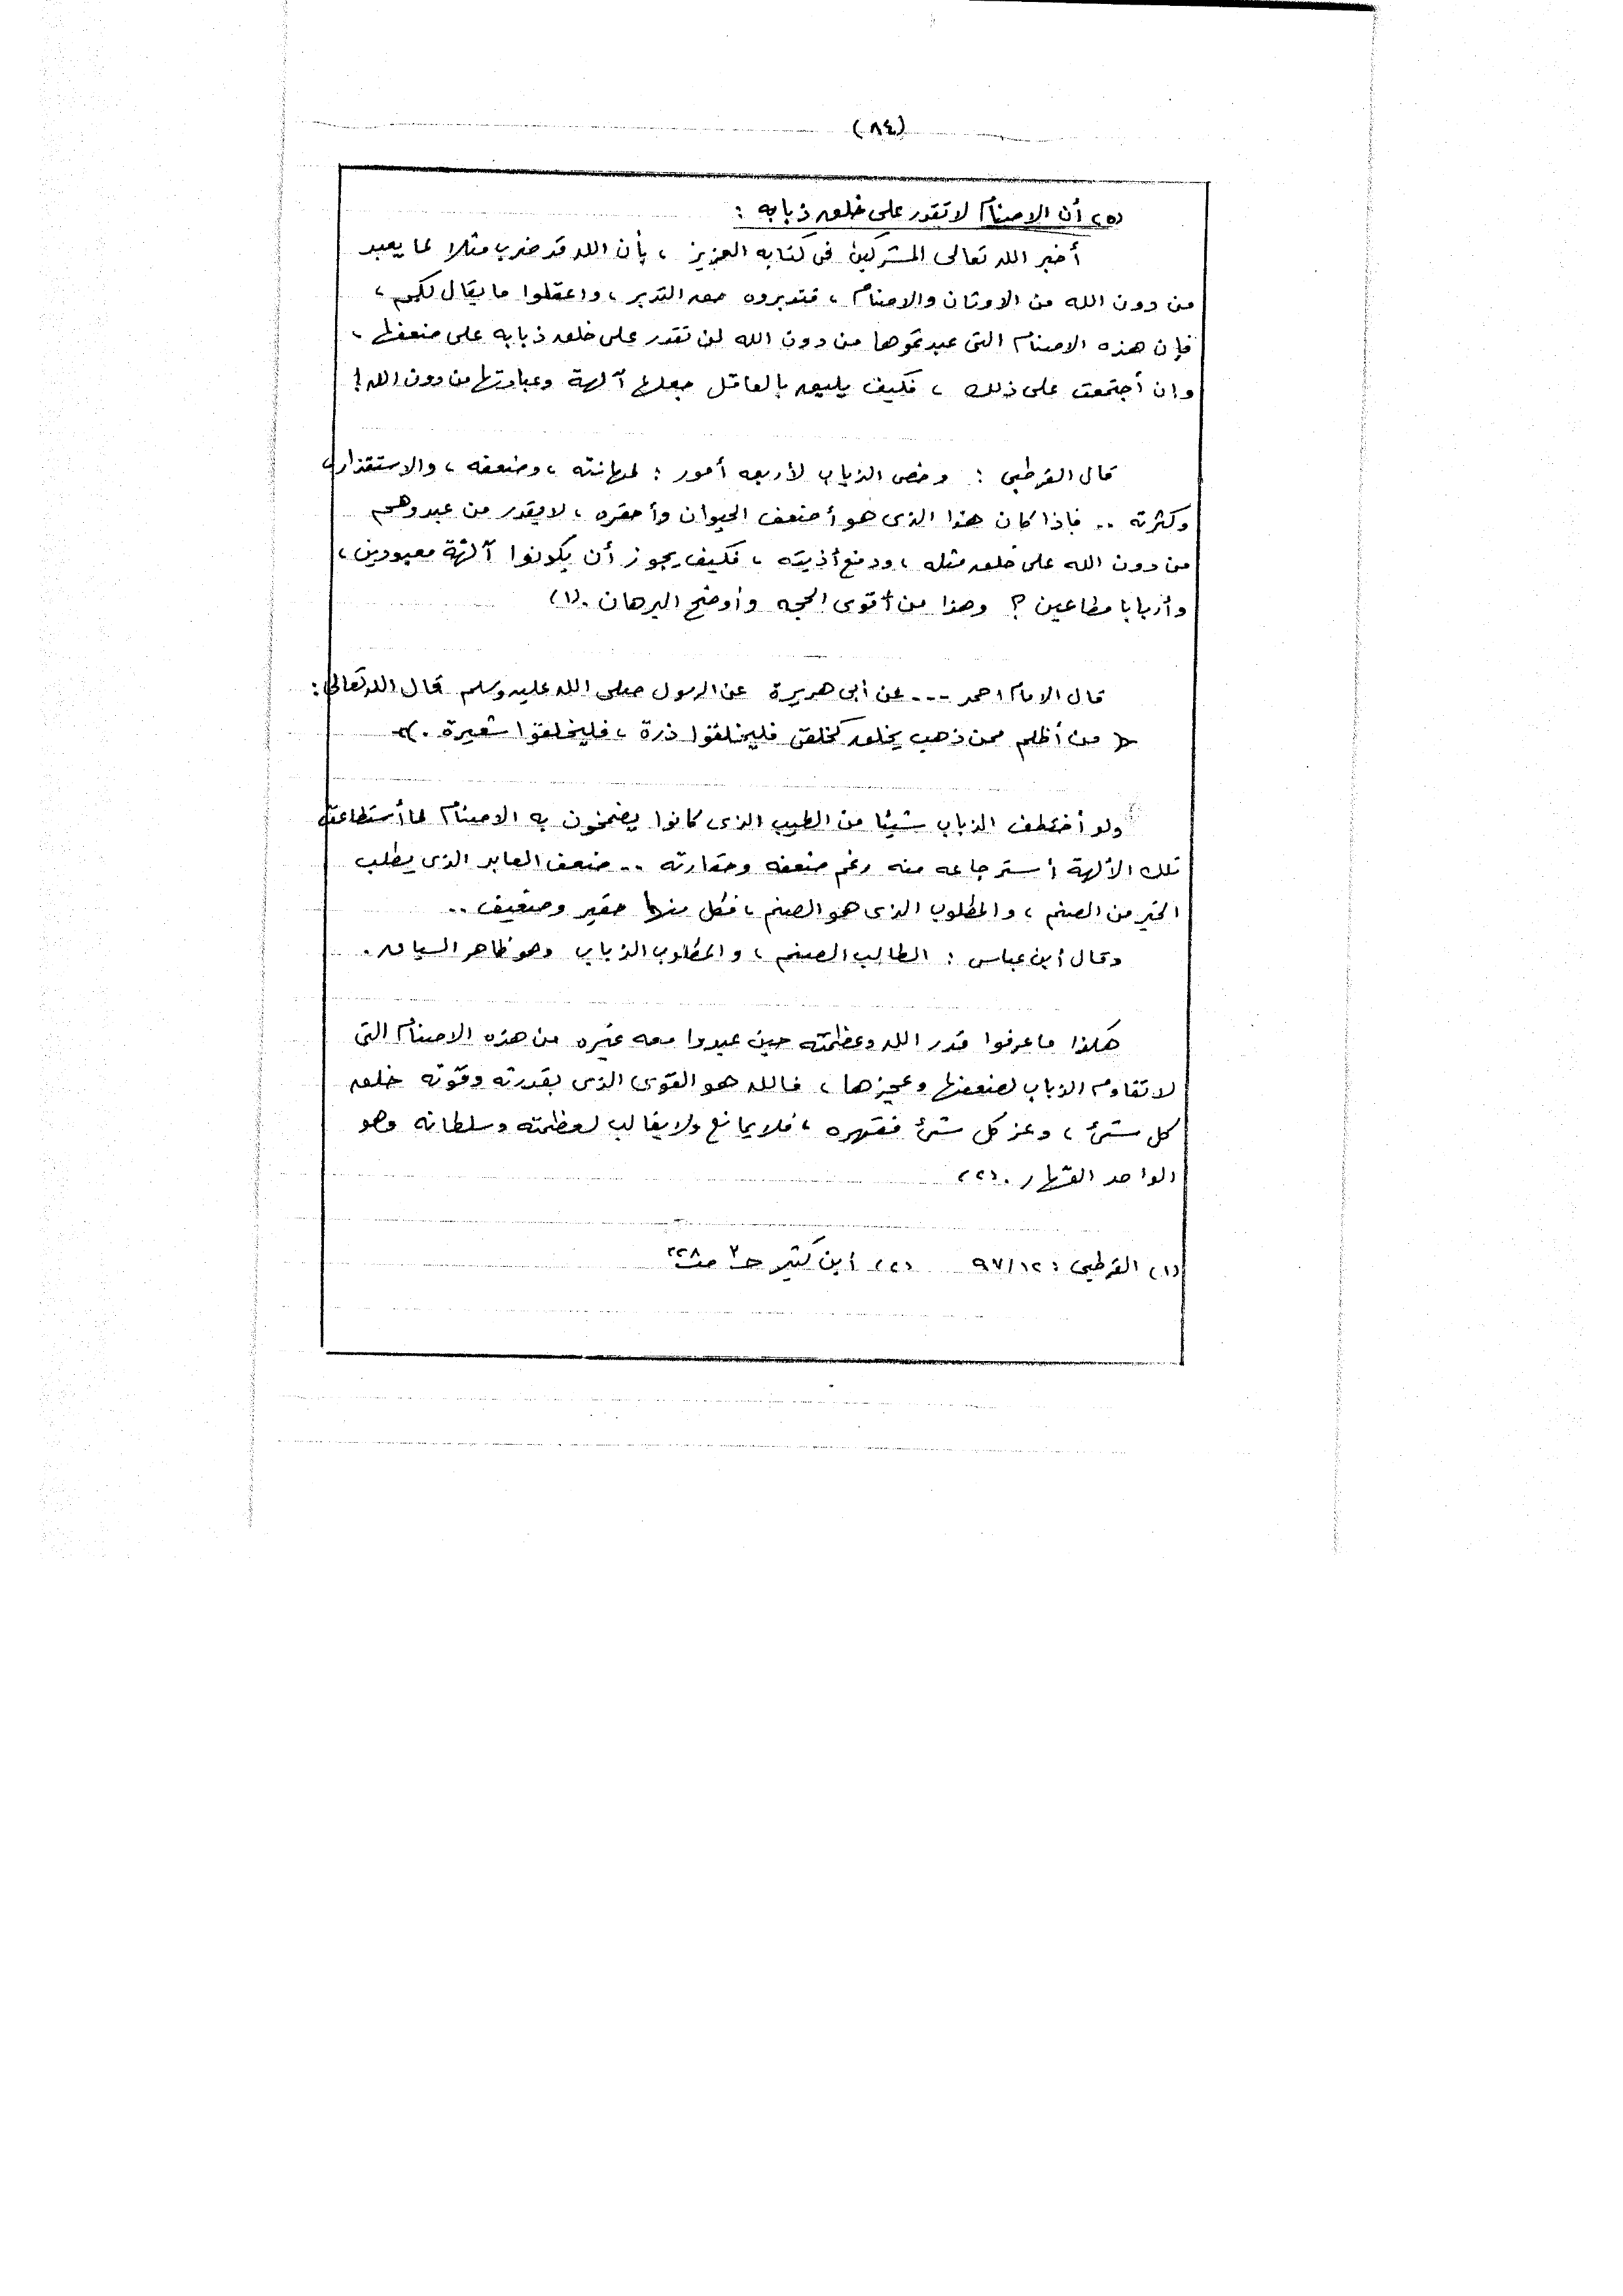 (٨٤)
(٥) أن الاصنام لا تقدر على خلق ذبابه :
أخبر الله تعالى المشركين فى كتابه العزيز ، بأن الله قد ضرب مثلا لما يعبد
من دون الله من الاوثان والاصنام ، فتدبروه حق التدبر ، واعقلوا ما يقال لكم ،
فإن هذه الاصنام التى عبدتموها من دون الله لن تقدر على خلق ذبابه على ضعفها ،
وان أجتمعت على ذلك ، فكيف يليق بالعاقل جعلها آلهة وعبادتها من دون الله !
قال القرطبى : وخص الذباب لأربعه أمور : لمهانته ، وضعفه ، والاستقذاره
وكثرته .. فاذا كان هذا الذى هو أضعف الحيوان وأحقره ، لايقدر من عبدوهم
من دون الله على خلق مثله ، ودفع أذيته ، فكيف يجوز أن يكونوا آلهة معبودين ،
وأربابا مطاعين ؟ وهذا من أقوى الحجه وأوضح البرهان . (١)
قال الامام احمد --- عن أبى هريرة عن الرسول صلى الله عليه وسلم قال الله تعالى :
( من أظلم ممن ذهب يخلق كخلقى فليخلقوا ذرة ، فليخلقوا شعيرة . )
ولو أختطف الذباب شيئا من الطيب الذى كانوا يضمخون به الاصنام لما أستطاعت
تلك الآلهة أسترجاعه منه رغم ضعفه وحقارته .. ضعف العابد الذى يطلب
الخير من الصنم ، والمطلوب الذى هو الصنم ، فكل منهما حقير وضعيف ..
وقال أبن عباس : الطالب الصنم ، والمطلوب الذباب وهو ظاهر السياق .
هكذا ما عرفوا قدر الله وعظمته حين عبدوا معه غيره من هذه الاصنام التى
لا تقاوم الذباب لضعفها وعجزها ، فالله هو القوى الذى بقدرته وقوته خلق
كل شئ ، وعز كل شئ فقهره ، فلا يمانع ولا يغالب لعظمته وسلطانه وهو
الواحد القهار . (٢)
(١) القرطبى : ٩٧/١٢ (٢) أبن كثير حـ ٣ صـ ٢٢٨